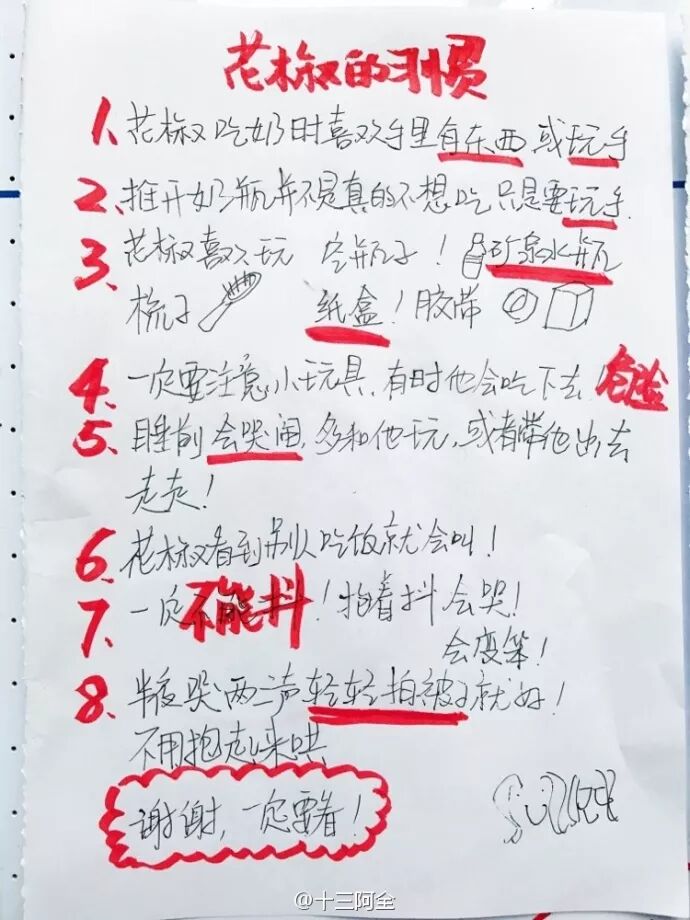 花椒的习惯
1、花椒吃奶时喜欢手里有东西或玩手
2、推开奶瓶并不是真的不想吃只是要玩手.
3、花椒喜欢玩 空瓶子！矿泉水瓶
梳子 纸盒！胶带
4、一定要注意小玩具,有时他会吃下去！危险
5、睡前会哭闹,多和他玩,或者带他出去
走走！
6、花椒看到别人吃饭就会叫！
7、一定不能抖！抱着抖会哭！
会变笨！
8、半夜哭两三声轻轻拍被子就好！
不用抱起来哄
谢谢,一定要看！
@十三阿全